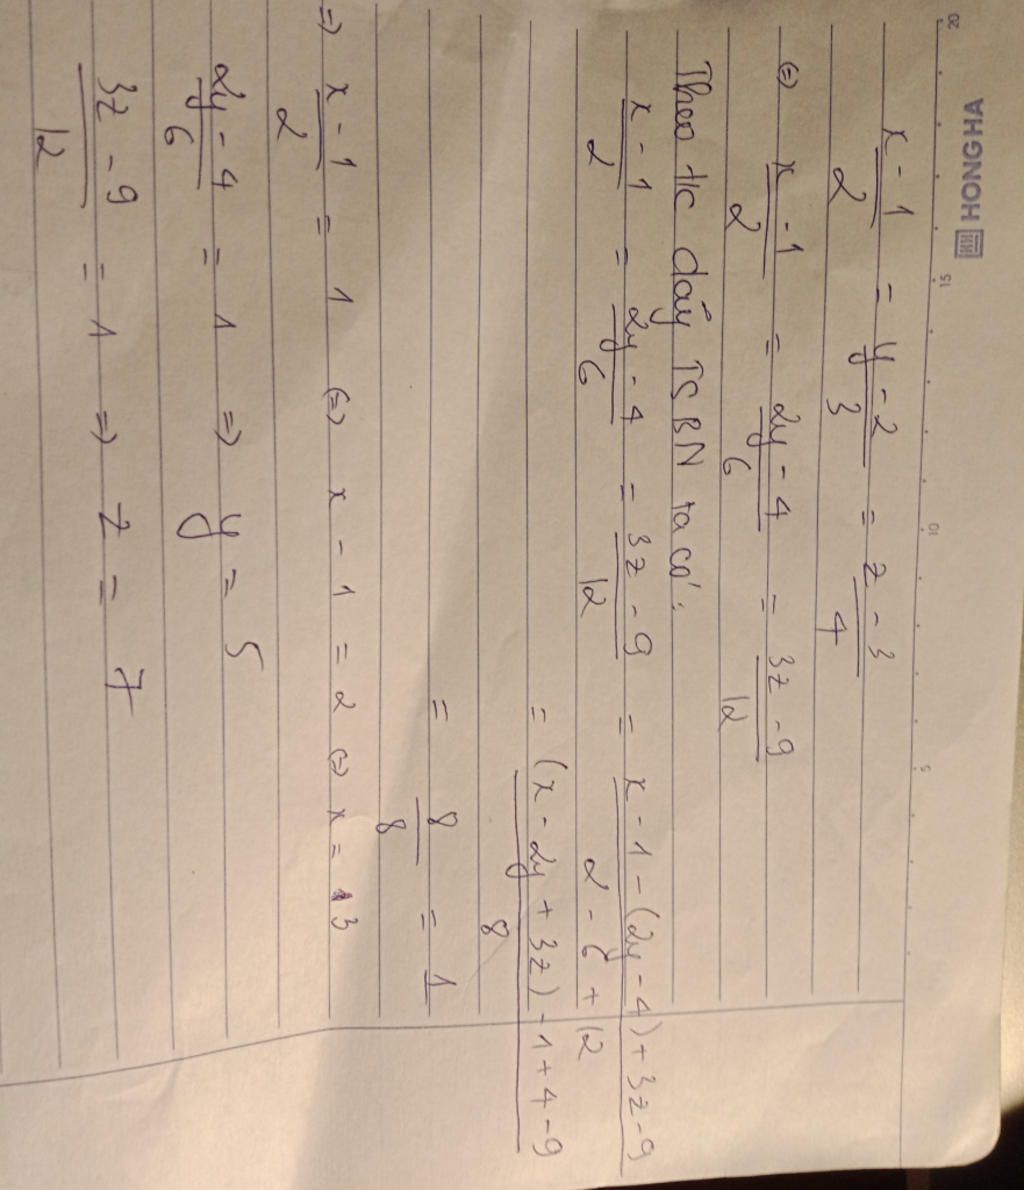 HONGHA
20 15 10 5
x - 1 / 2 = y - 2 / 3 = z - 3 / 4
(=) x - 1 / 2 = 2y - 4 / 6 = 3z - 9 / 12
Theo t/c dãy TSBN ta có:
x - 1 / 2 = 2y - 4 / 6 = 3z - 9 / 12 = x - 1 - (2y - 4) + 3z - 9 / 2 - 6 + 12
= (x - 2y + 3z) - 1 + 4 - 9 / 8
= 8 / 8 = 1
=) x - 1 / 2 = 1 (=) x - 1 = 2 (=) x = 3
2y - 4 / 6 = 1 =) y = 5
3z - 9 / 12 = 1 =) z = 7